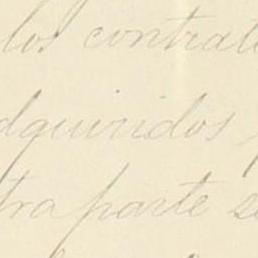 los contrat
dquiridos
traparte se